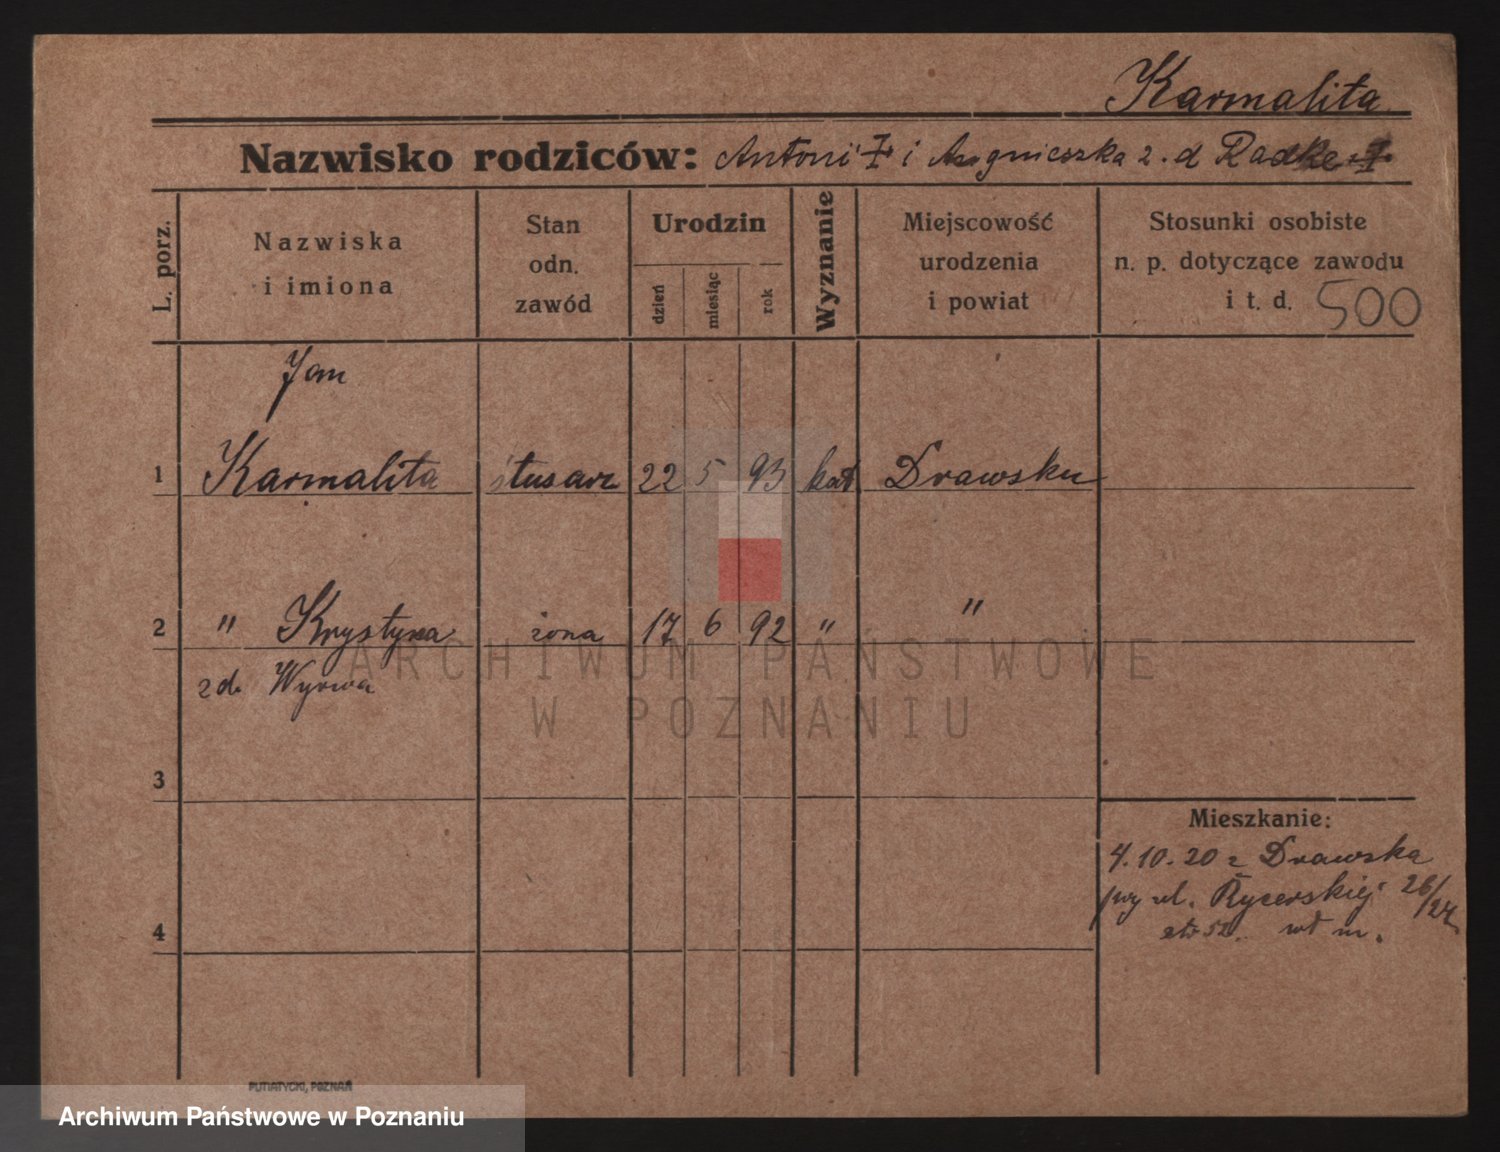 Karmalita
Nazwisko rodziców: Antoni † i Agnieszka z. d Radke †
L. porz.
Nazwiska
i imiona
Stan
odn.
zawód
Urodzin
dzień
miesiąc
rok
Wyznanie
Miejscowość
urodzenia
i powiat
Stosunki osobiste
n. p. dotyczące zawodu
i t. d. 500
Jan
1 Karmalita ślusarz 22 5 93 kat Drawsku
2 " Krystyna żona 17 6 92 " "
z d. Wyrwa
3
4
Mieszkanie:
4.10.20 z Drawska
przy ul. Rycerskiej 26/27
str 52. wł m.
ARCHIWUM PAŃSTWOWE
W POZNANIU
PUTIATYCKI, POZNAŃ
Archiwum Państwowe w Poznaniu